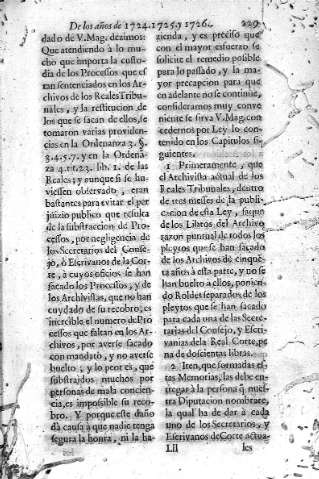 De los años de 1724.1725.y 1726. 229
dado de V. Mag. dezimos:
Que atendiendo à lo mu-
cho que importa la custo-
dia de los Processos que es-
tan sentenciados en los Ar-
chivos de los Reales Tribu-
nales, y la restitucion de
los que se sacan de ellos, se
tomaron varias providen-
cias en la Ordenanza 3. §.
3.4.5.7. y en la Ordená-
za 4. tit.23. lib. 2. de las
Reales; y aunque si se hu-
viessen observado, eran
bastantes para evitar el per
juizio publico que resulta
de la substraccion de Pro-
cessos, por negligencia de
los Secretarios del Conse-
jo, ò Escrivanos de la Cor-
te, à cuyos oficios se han
sacado los Processos, y de
los Archivistas, que no han
cuydado de su recobro; es
increible el numero de Pro
cessos que faltan en los Ar-
chivos, por averse sacado
con mandato, y no averse
buelto; y lo peor es, que
substraidos muchos por
personas de mala concien-
cia, es impossible su reco-
bro. Y porque este daño
dà causa à que nadie tenga
segura la honra, ni la ha-
zienda, y es preciso que
con el mayor esfuerzo se
solicite el remedio posible
para lo passado, y la ma-
yor precaucion para que
en adelante no se continue,
consideramos muy conve
niente se sirva V. Mag. con
cedernos por Ley lo con-
tenido en los Capitulos si-
guientes.
1 Primeramente, que
el Archivista actual de los
Reales Tribunales, dentro
de tres meses de la publi-
cacion de esta Ley, saque
de los Libros del Archivo
razon puntual de todos los
pleytos que se han sacado
de los Archivos de cinquē-
ta años à esta parte, y no se
han buelto à ellos, ponien-
do Roldes separados de los
pleytos que se han sacado
para cada una de las Secre-
tarias del Consejo, y Escri-
vanias de la Real Corte, pe
na de doscientas libras.
2 Iten, que formadas es-
tas Memorias, las debe en-
tregar à la persona q̄ nues-
tra Diputacion nombrare,
la qual ha de dar à cada
uno de los Secretarios, y
Escrivanos de Corte actua-
Lll les